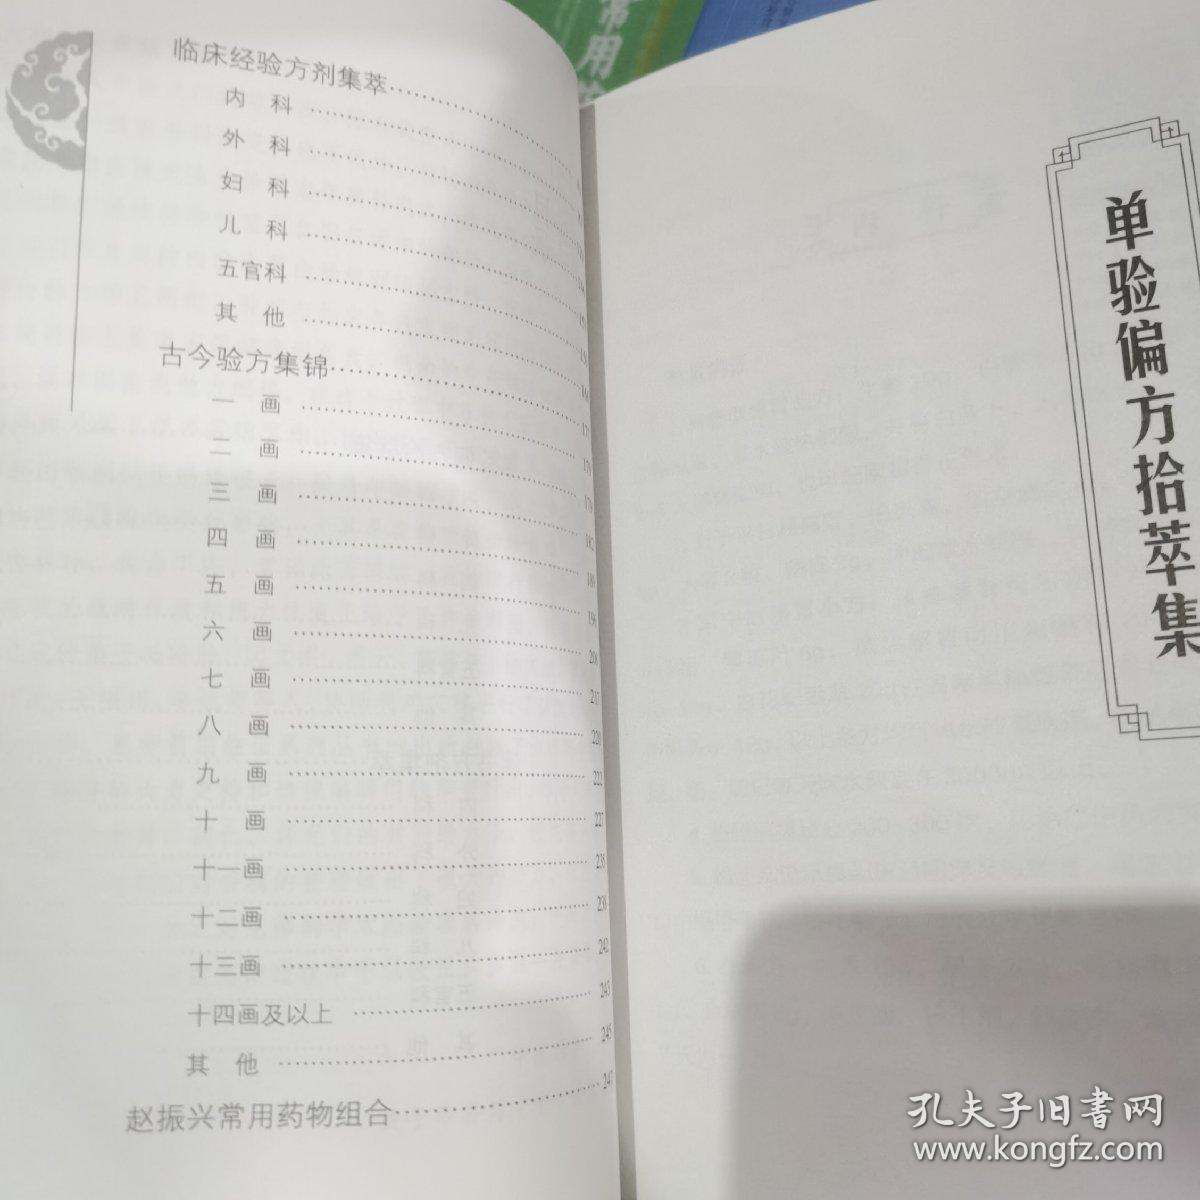 临床经验方剂集萃
内 科
外 科
妇 科
儿 科
五官科
其 他
古今验方集锦 177
一 画
二 画 179
三 画 182
四 画 189
五 画 196
六 画 208
七 画 217
八 画 220
九 画 222
十 画 227
十一画
十二画 239
十三画 242
十四画及以上 243
其 他 245
赵振兴常用药物组合 247
常用药
单验偏方拾萃集
孔夫子旧书网
www.kongfz.com